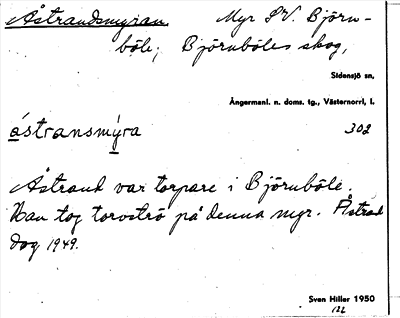 Åstrandsmyran. Myr SV. Björn-
böle; Björnböles skog,
Sidensjö sn,
Ångermanl. n. doms. tg., Västernorrl, l.
åstransmýra 302
Åstrand var torpare i Björnböle.
Han tog torvströ på denna myr. Åstrand
dog 1949.
Sven Hiller 1950